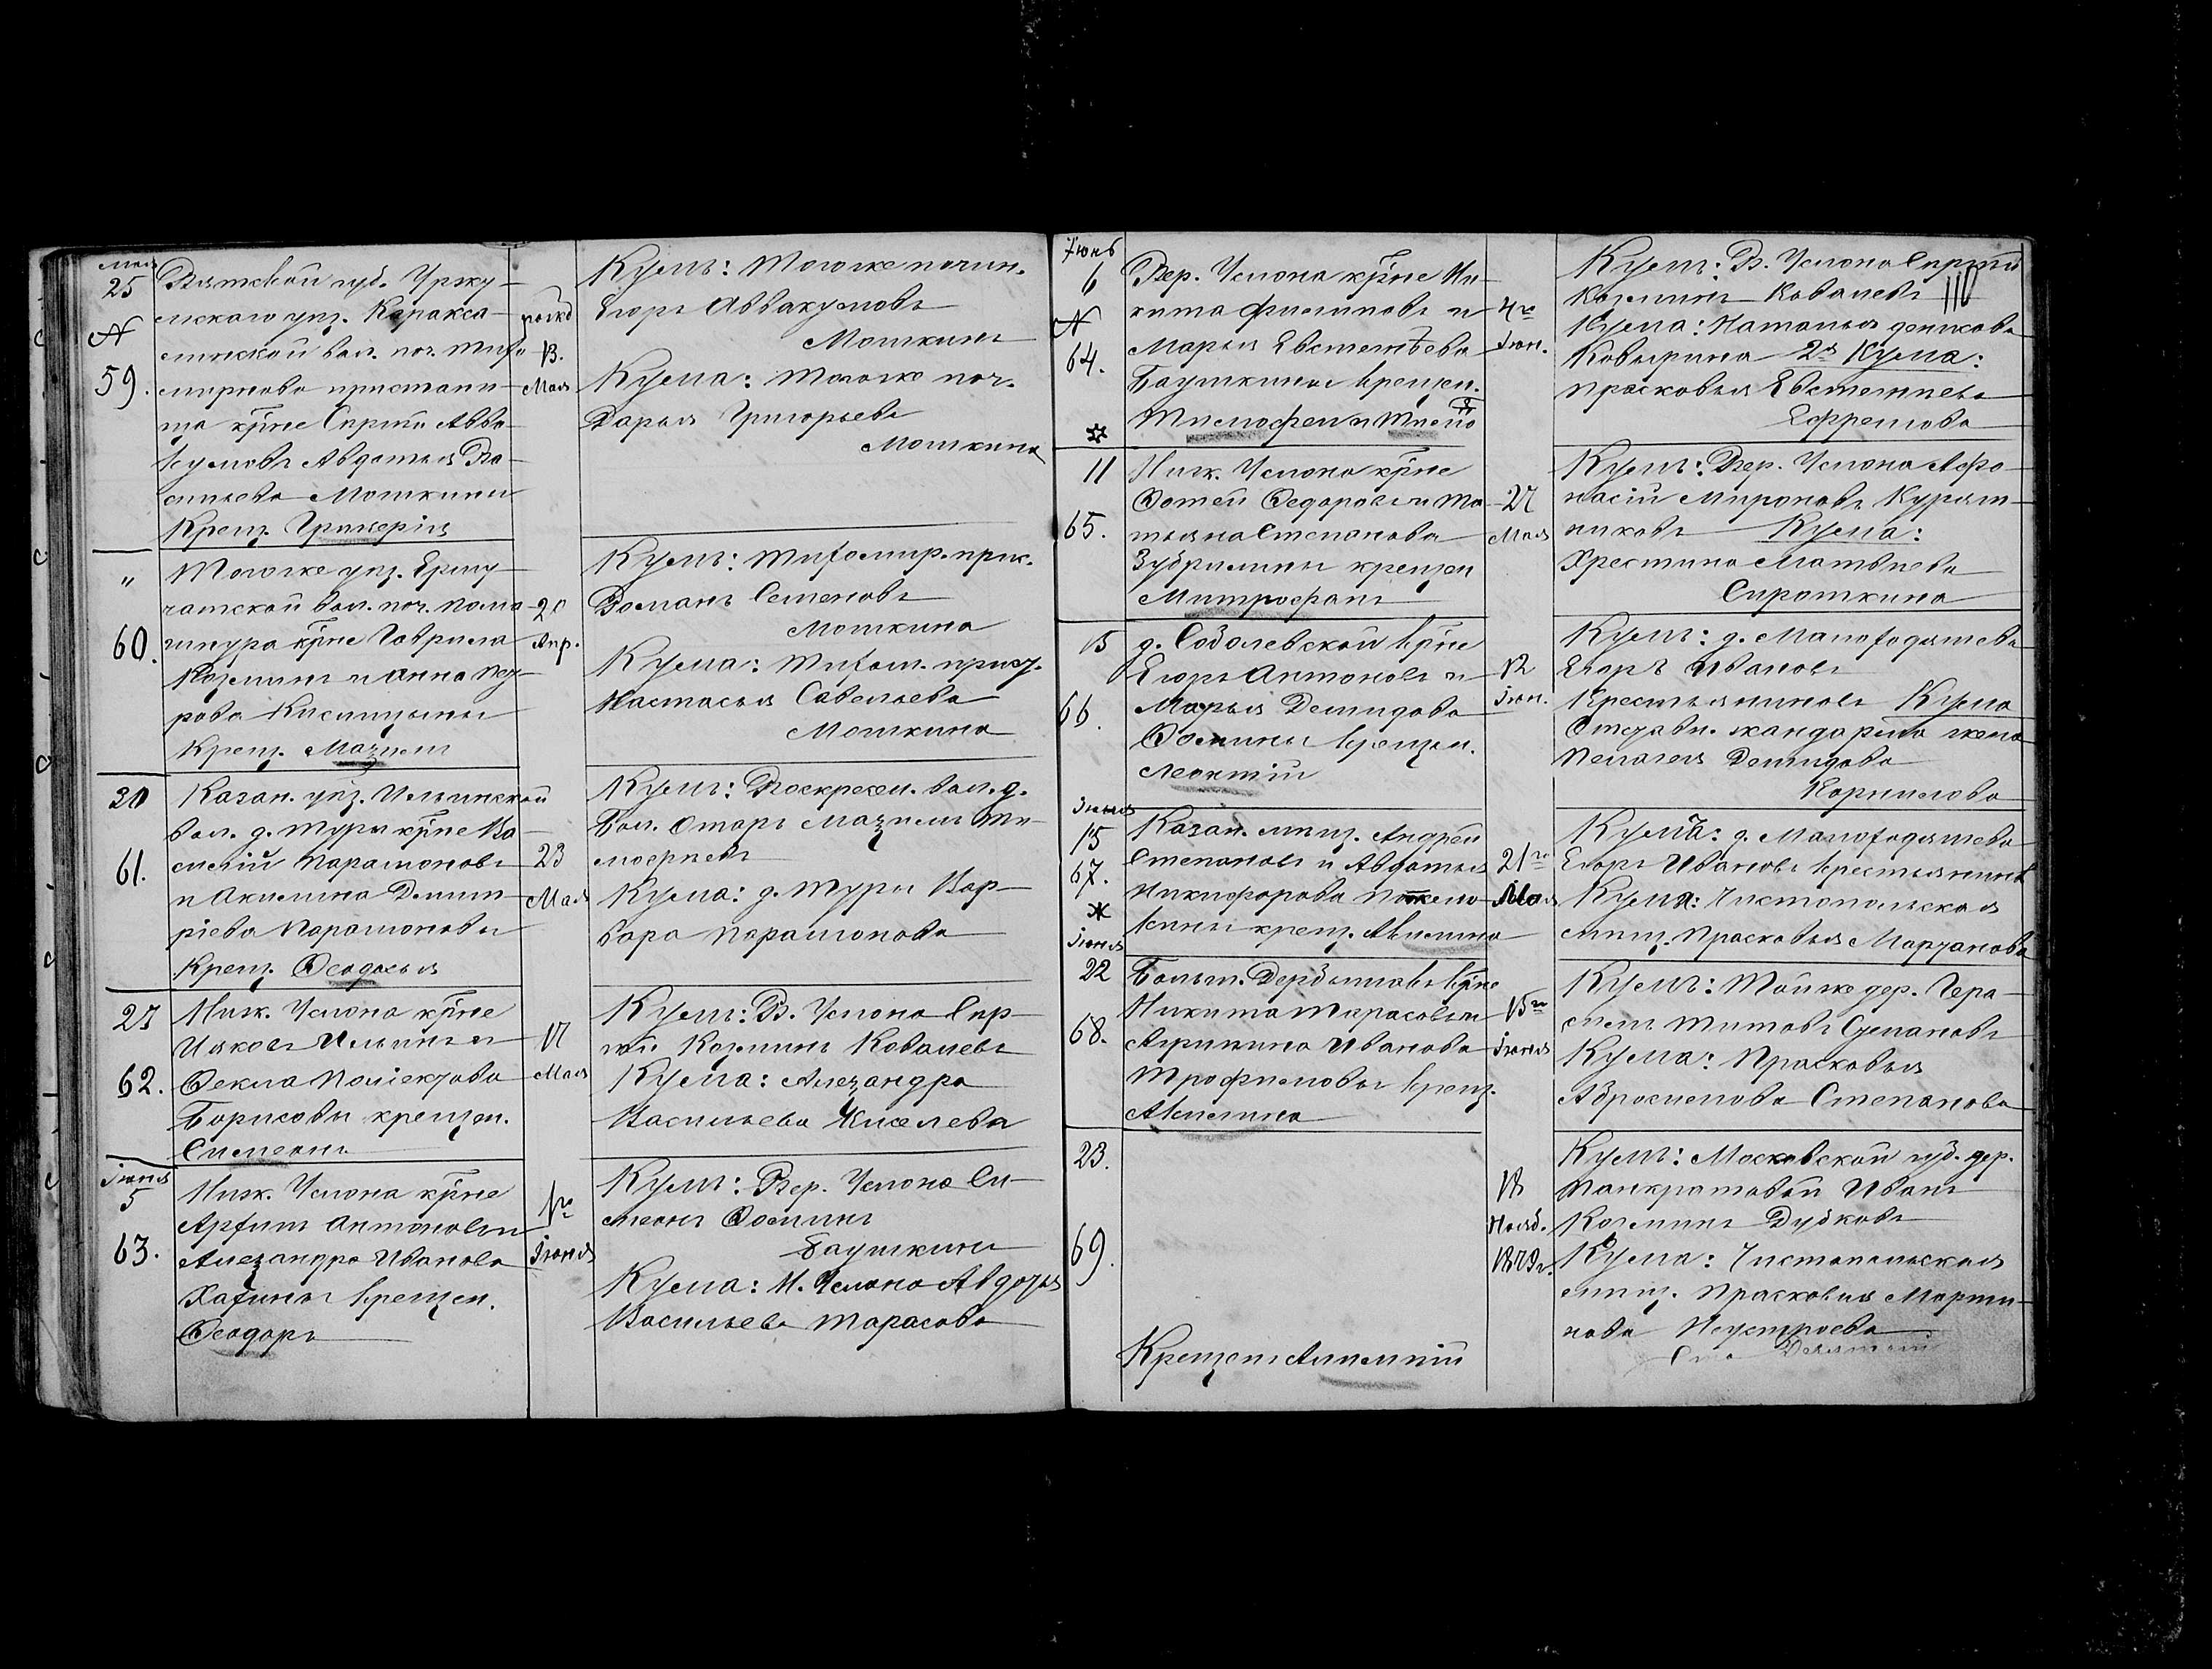 Мая
25
N
59.
Вятской губ. Уржу-
мскаго уѣз. Каракса-
линской вол. поч. Тихо-
мирново пристани-
ща кр̃не Сиргѣй Авва-
кумовъ Авдотья Ва-
сильева Мошкины
Крещ. Гликерія
рожд
13.
Мая
Кумъ: Тогоже почин.
Егоръ Аввакумовъ
Мошкинъ
Кума: Тогоже поч.
Дарья Григорьева
Мошкина
"
60.
Тогоже уѣз. Ерну-
чатской вол. поч.
кр̃не Гаврила
Козминъ и Анна
рова Кислицыны
Крещ. Макзимъ
20
Апр.
Кумъ: Тихомир. прис.
Романъ Семеновъ
Мошкина
Кума: Тихом. прис.
Настасья Савельева
Мошкина
30
61.
Казан. уѣз. Ильинской
вол. д. Туры кр̃не Ва-
силій Парамоновъ
и Акилина Дмит-
ріева Парамоновы
Крещ. Ѳеодосья
23
Мая
Кумъ: Воскресен. вол. д.
Бол. Отаръ Макзимъ Ти-
моѳеевъ
Кума: д. Туры Вар-
вара Парамонова
27
62.
Ниж. Услона кр̃не
Ияковъ Ильинъ и
Ѳекла Поліектова
Борисовы крещен.
Симеонъ
17
Мая
Кумъ: В. Услона Сир-
гѣй Козминъ Ковалевъ
Кума: Алезандра
Васильева Киселева
Іюня
5
63.
Ниж. Услона кр̃не
Архипъ Антоновъ и
Алезандра Иванова
Хахины крещен.
Ѳеодоръ
1го
Іюня
Кумъ: Вер. Услона Си-
меонъ Ѳоминъ
Баушкинъ
Кума: Н. Услона Авдотья
Васильева Тарасова
Іюнь
6
N
64.
Вер. Услона кр̃не Ни-
кита Филиповъ и
Марья Евстетѣева
Баушкины крещен.
4го
Іюн.
Кумъ: В. Услона Сиргѣй
Козминъ Ковалевъ
Кума: Наталья Денисова
Ковырзина 2я Кума:
Прасковья Евстетнева
Ефремова
110
11
65.
Ниж. Услона кр̃не
Ѳотей Ѳедоровъ и Та-
тьяна Степанова
Зубрилины крещен
Митрофанъ
27
Мая
Кумъ: Вер. Услона Афа-
насій Мироновъ Курят-
никовъ Кума:
Хрестина Матвѣева
Сироткина
15
66.
д. Соболевской кр̃не
Егоръ Антоновъ и
Марья Демидова
Ѳомины крещен.
Леонтій
12
Іюн.
Кумъ: д. Малоходяшева
Егоръ Ивановъ
Крестьяниновъ Кума
Отставн. жандарма жена
Пелагея Демидова
Корнилова
Іюня
15
67.
Казан. мѣщ. Андрей
Степановъ и Авдотья
Никифорова
крещ. Акилина
21го
Мая
Кумъ: д. Малоходяшева
Егоръ Ивановъ Крестьянинов
Кума: Чистопольская
мѣщ. Прасковья Марданова
Іюня
22
68.
Больш. Дербышков кр̃не
Никита Тарасовъ и
Агрипина Иванова
Трофимовы крещ.
Акилина
15го
Іюня
Кумъ: Тойже дер. Гера-
симъ Титовъ Степановъ
Кума: Прасковья
Абросимова Степанова
23.
69.
Крещенъ Алимпій
18
Нояб.
1879г.
Кумъ: Московской губ. дер.
Панкратовой Иванъ
Козминъ Дубковъ
Кума: Чистопольская
мѣщ. Прасковья Марти-
нова Неустроева